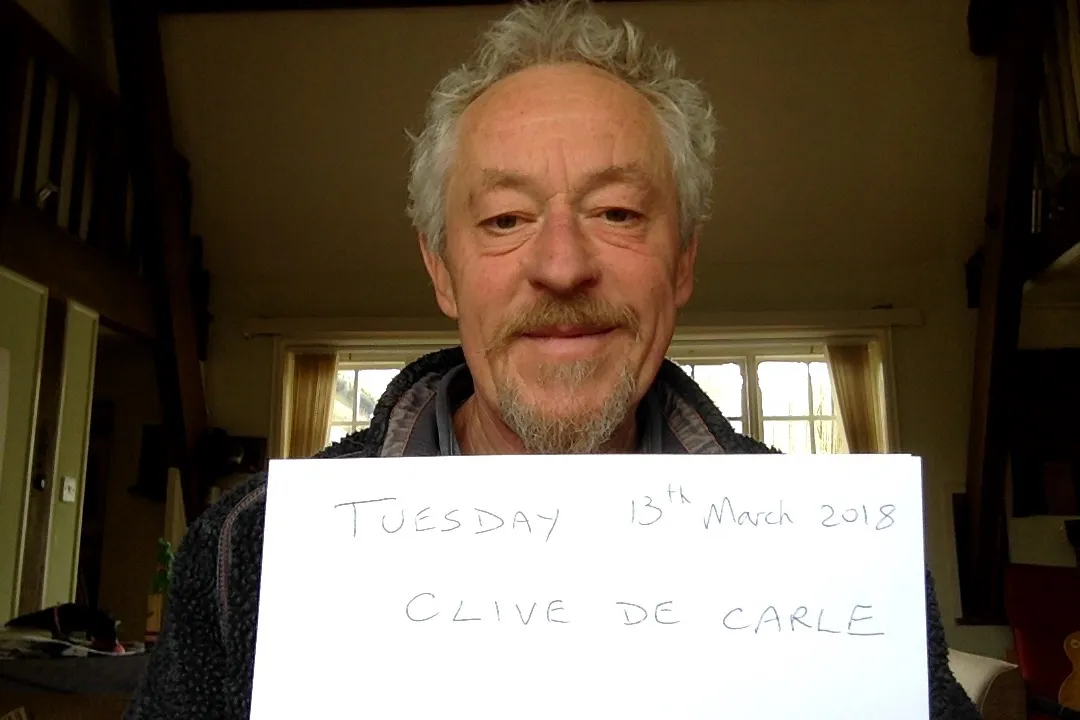 TUESDAY 13th March 2018
CLIVE DE CARLE